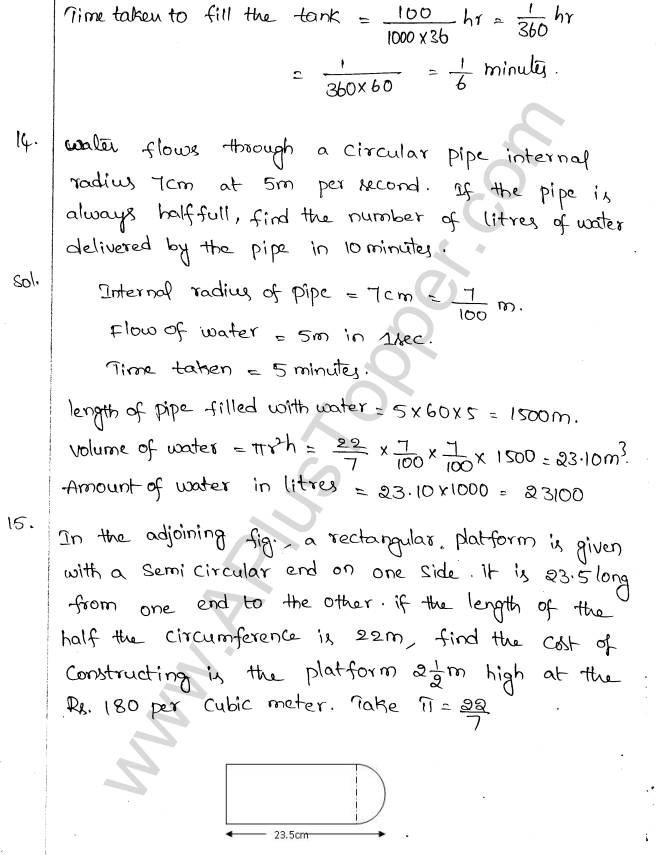 Time taken to fill the tank = 100/(1000 × 36) hr = 1/360 hr
= 1/(360×60) = 1/6 minutes.
14. water flows through a circular pipe internal
radius 7cm at 5m per second. If the pipe is
always half full, find the number of litres of water
delivered by the pipe in 10 minutes.
Sol. Internal radius of pipe = 7cm = 7/100 m.
Flow of water = 5m in 1sec.
Time taken = 5 minutes.
length of pipe filled with water = 5×60×5 = 1500m.
Volume of water = πr²h = 22/7 × 7/100 × 7/100 × 1500 = 23.10m³.
Amount of water in litres = 23.10×1000 = 23100
15. In the adjoining fig., a rectangular. platform is given
with a semi circular end on one side. it is 23.5 long
from one end to the other. if the length of the
half the circumference is 22m, find the cost of
constructing is the platform 2 1/2 m high at the
Rs. 180 per cubic meter. Take π = 22/7
23.5cm
www.APlusTopper.com